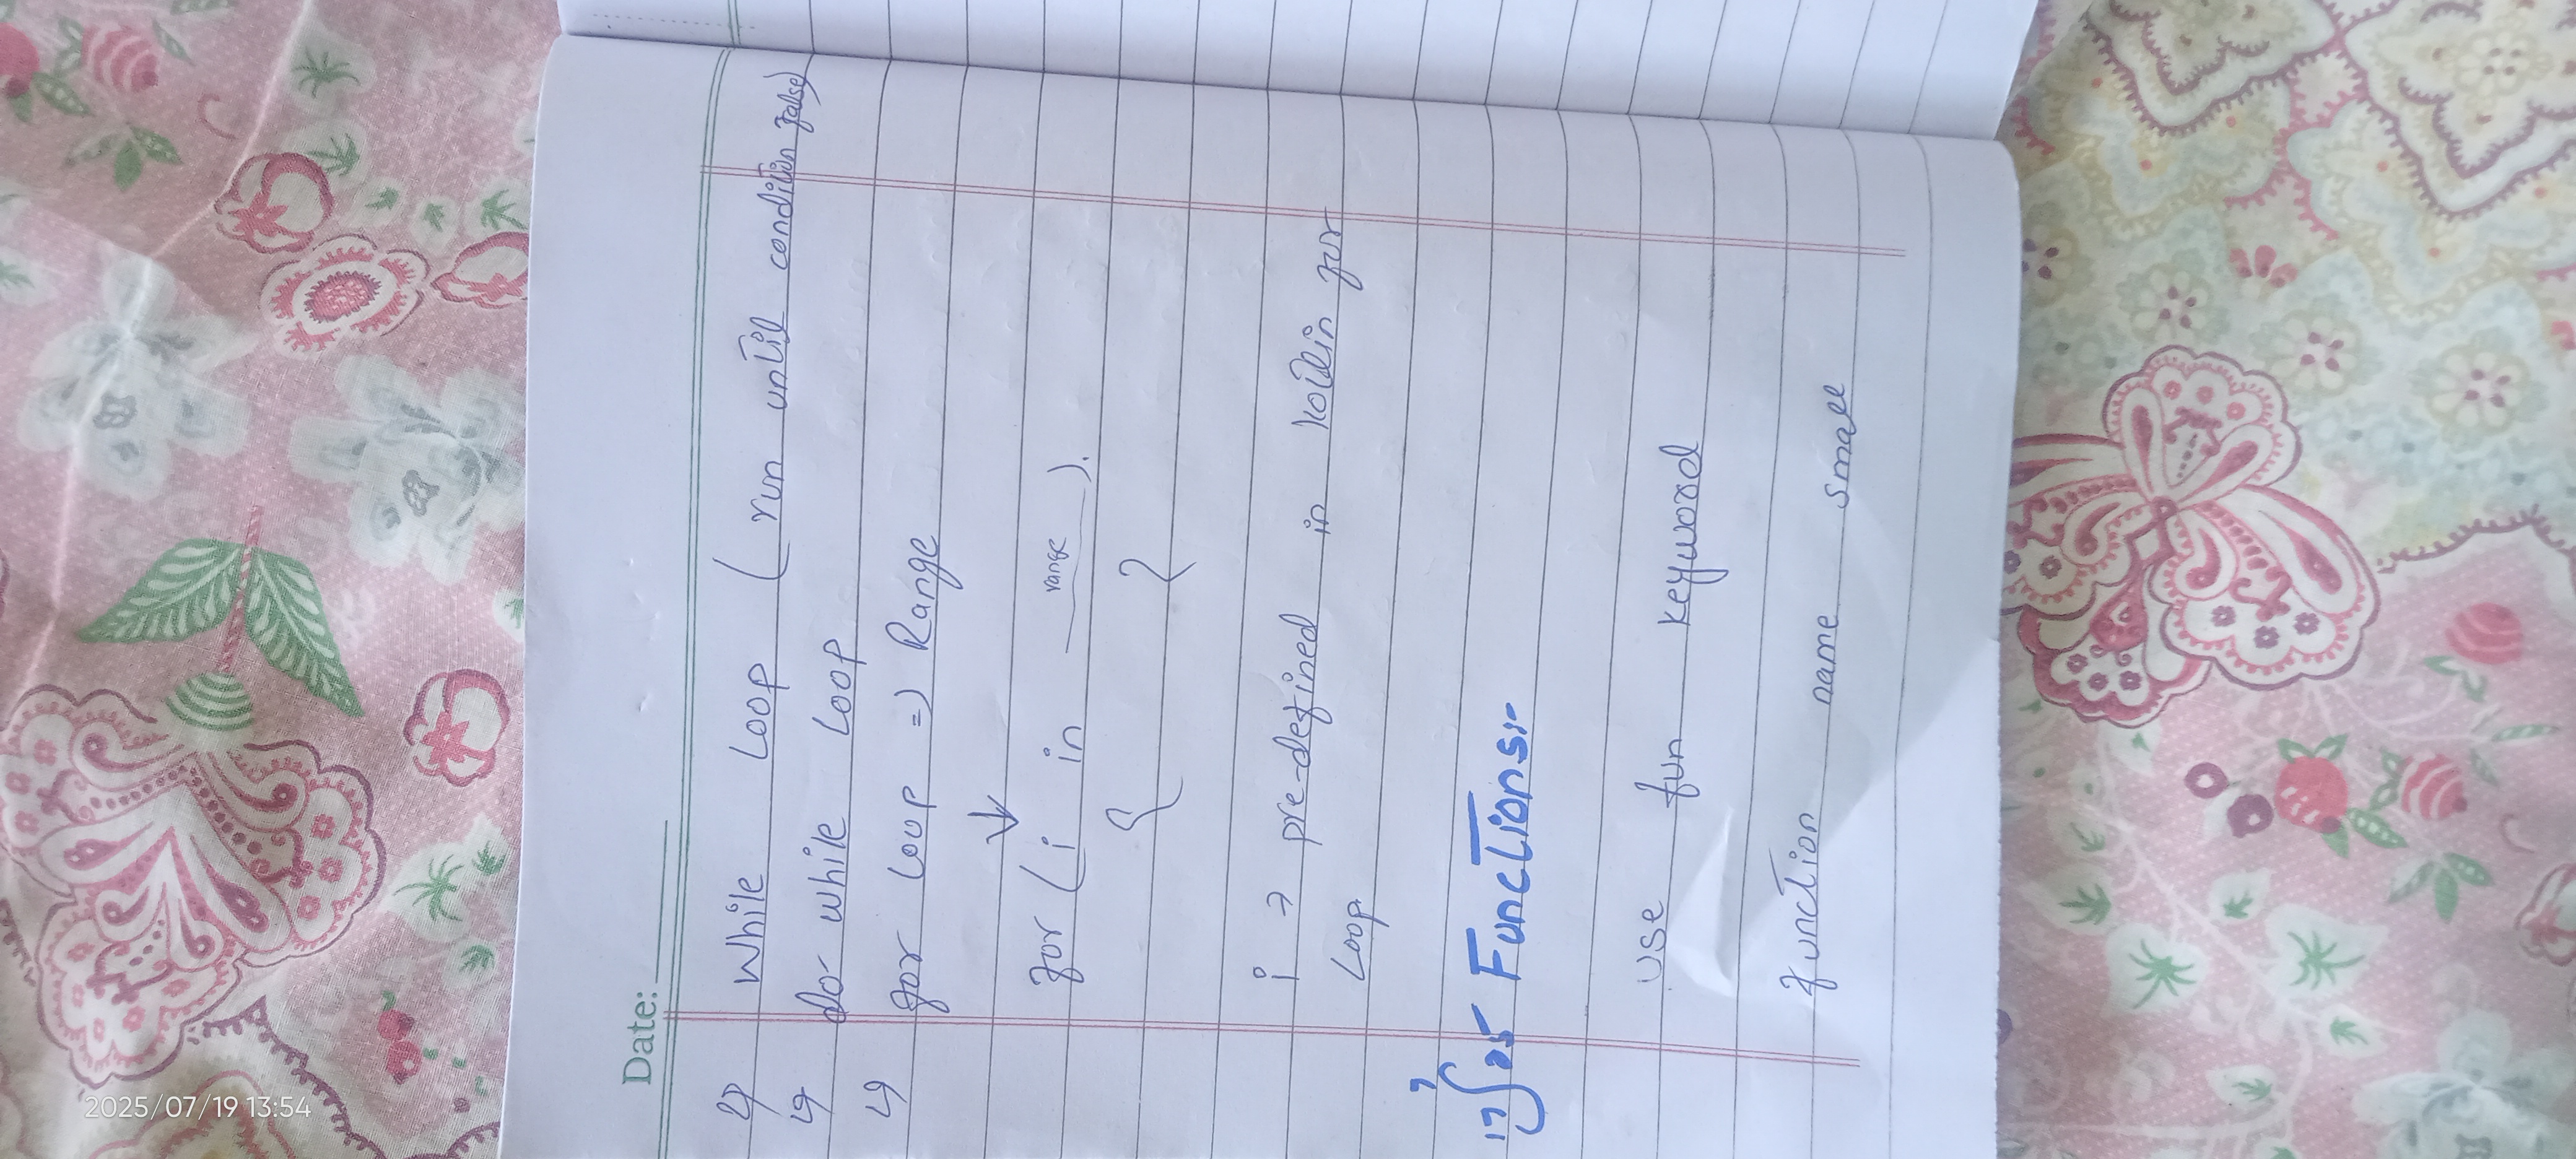 2025/07/19 13:54
Date:
↳ While Loop ( run until condition false)
↳ do while Loop
↳ for Loop => Range
↓
for ( i in range ).
{ }
i → pre-defined in kotlin for
Loop.
17/7/25 Functions:-
use fun keyword
function name small